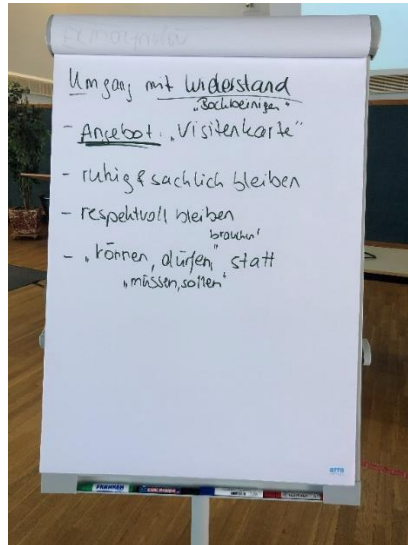 Umgang mit Widerstand
"Bockbeinigen"
- Angebot: "Visitenkarte"
- ruhig & sachlich bleiben
- respektvoll bleiben
brauchen"
- "können, dürfen," statt
"müssen, sollen"
FRANKEN